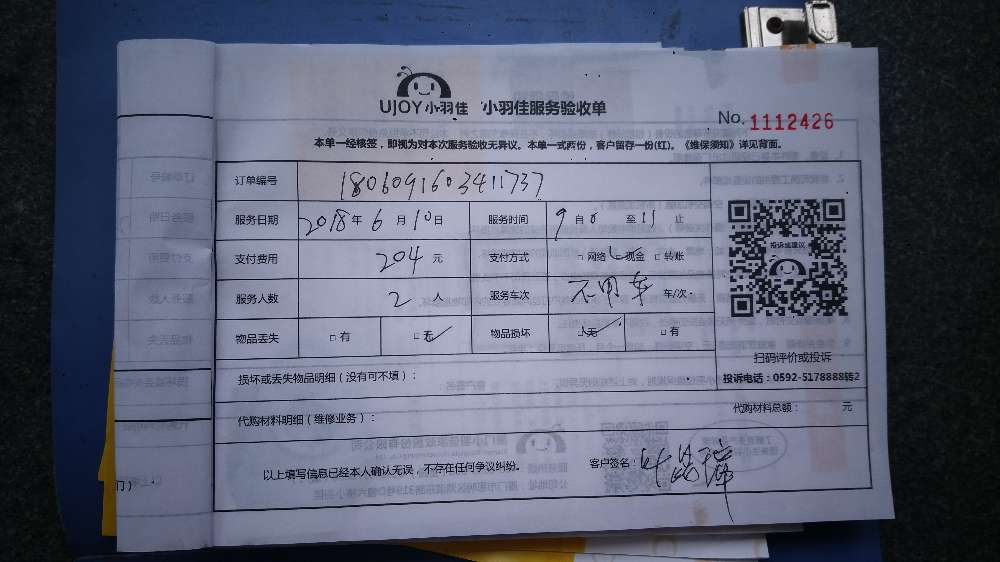 UJOY小羽佳 小羽佳服务验收单
No. 1112426
本单一经核签，即视为对本次服务验收无异议。本单一式两份，客户留存一份(红)。《维保须知》详见背面。
订单编号 1806091603411737
服务日期 2018年6月10日 服务时间 9自 至11止
支付费用 204元 支付方式 □网络 □现金 □转账
投诉或建议
服务人数 2人 服务车次 不用车 车/次
物品丢失 □有 □无 物品损坏 □无 □有
扫码评价或投诉
损坏或丢失物品明细（没有可不填）：
投诉电话：0592-5178888转2
代购材料明细（维修业务）： 代购材料总额： 元
以上填写信息已经本人确认无误，不存在任何争议纠纷。 客户签名：
门）